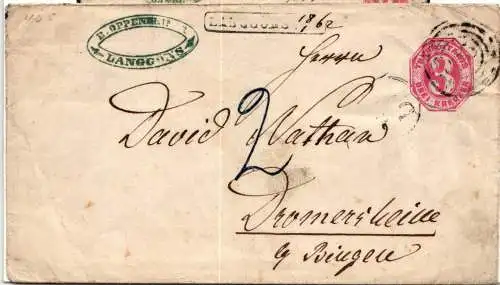 H. OPPENHEIMER
LANGGÖNS
LANGGÖNS
18/62
3
DREI KREUZER
Herrn
David Nathan
2
Dromersheim
b/ Bingen